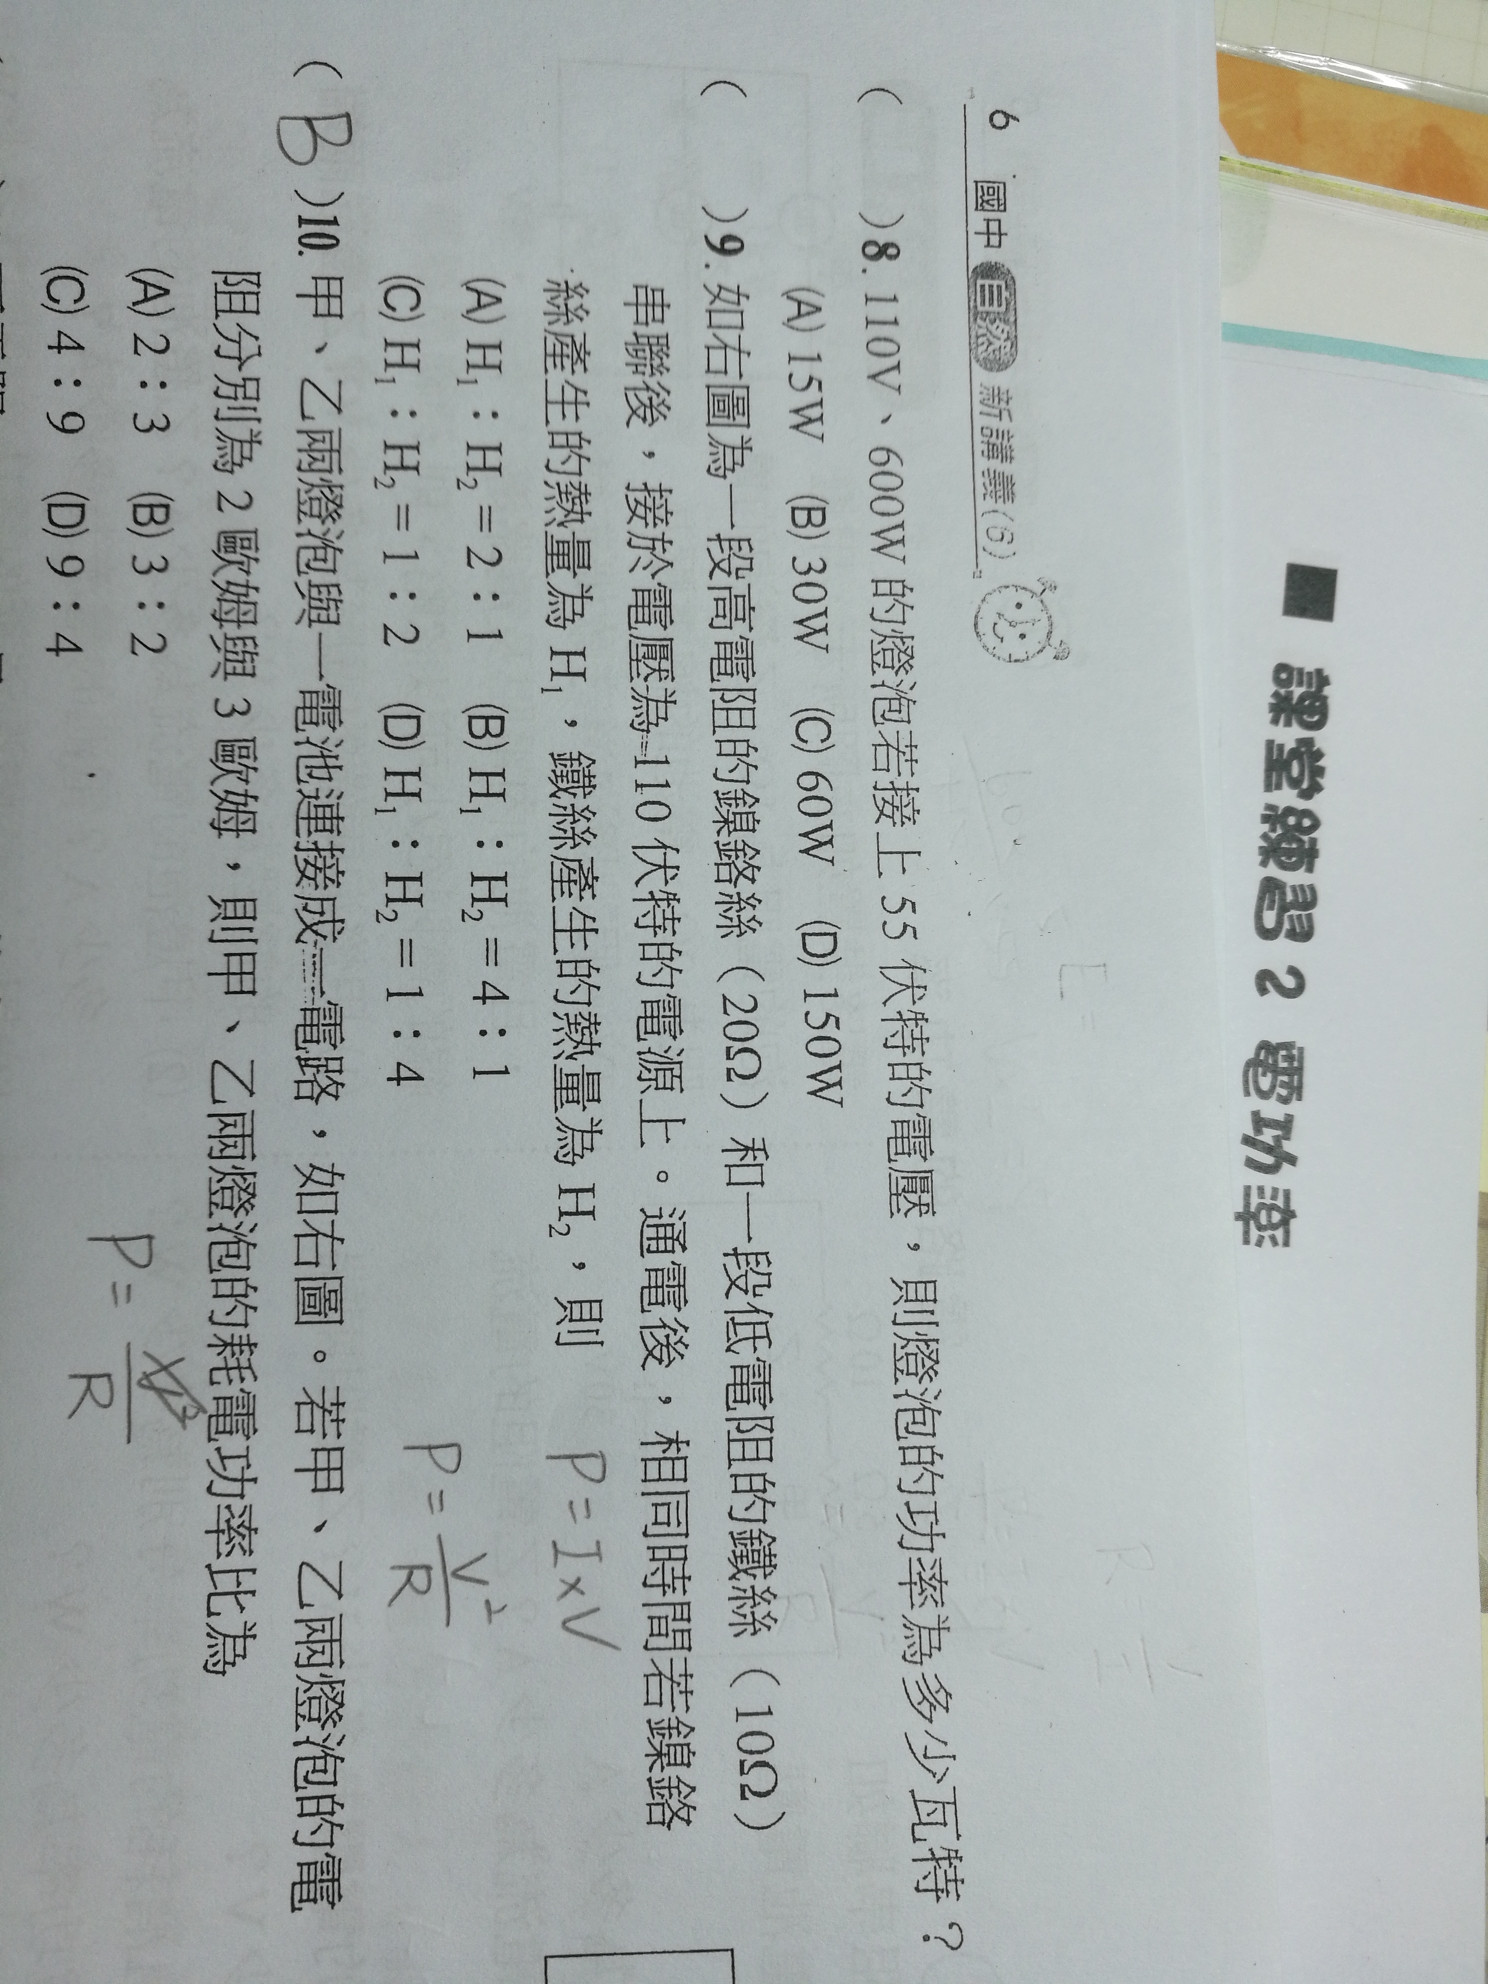 課堂練習 2 電功率
6 國中 自然 新講義(6)
( )8. 110V、600W 的燈泡若接上 55 伏特的電壓，則燈泡的功率為多少瓦特？
(A) 15W (B) 30W (C) 60W (D) 150W
( )9. 如右圖為一段高電阻的鎳鉻絲（20Ω）和一段低電阻的鐵絲（10Ω）
串聯後，接於電壓為 110 伏特的電源上。通電後，相同時間若鎳鉻
絲產生的熱量為 H₁，鐵絲產生的熱量為 H₂，則
P = I × V
(A) H₁：H₂ = 2：1 (B) H₁：H₂ = 4：1
(C) H₁：H₂ = 1：2 (D) H₁：H₂ = 1：4
P = V²/R
( B )10. 甲、乙兩燈泡與一電池連接成一電路，如右圖。若甲、乙兩燈泡的電
阻分別為 2 歐姆與 3 歐姆，則甲、乙兩燈泡的耗電功率比為
(A) 2：3 (B) 3：2
P = V²/R
(C) 4：9 (D) 9：4